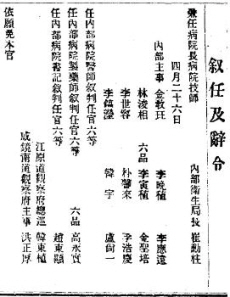 敍任及辭令
兼任病院長病院技師 內部衛生局長 崔勳柱
四月二十六日
內部主事 金敎珏 李晩植 李應遠
林浚相 六品 李寅植 金聖培
李世容 朴馨來 李浩慶
李鎬瀅 韓宇 盧尙一
任內部病院醫師敍判任官六等
任內部病院製藥師敍判任官六等 六品 高永寬
任內部病院書記敍判任官六等 趙東顯
江原道觀察府總巡 韓東植
咸鏡南道觀察府主事 洪正厚
依願免本官